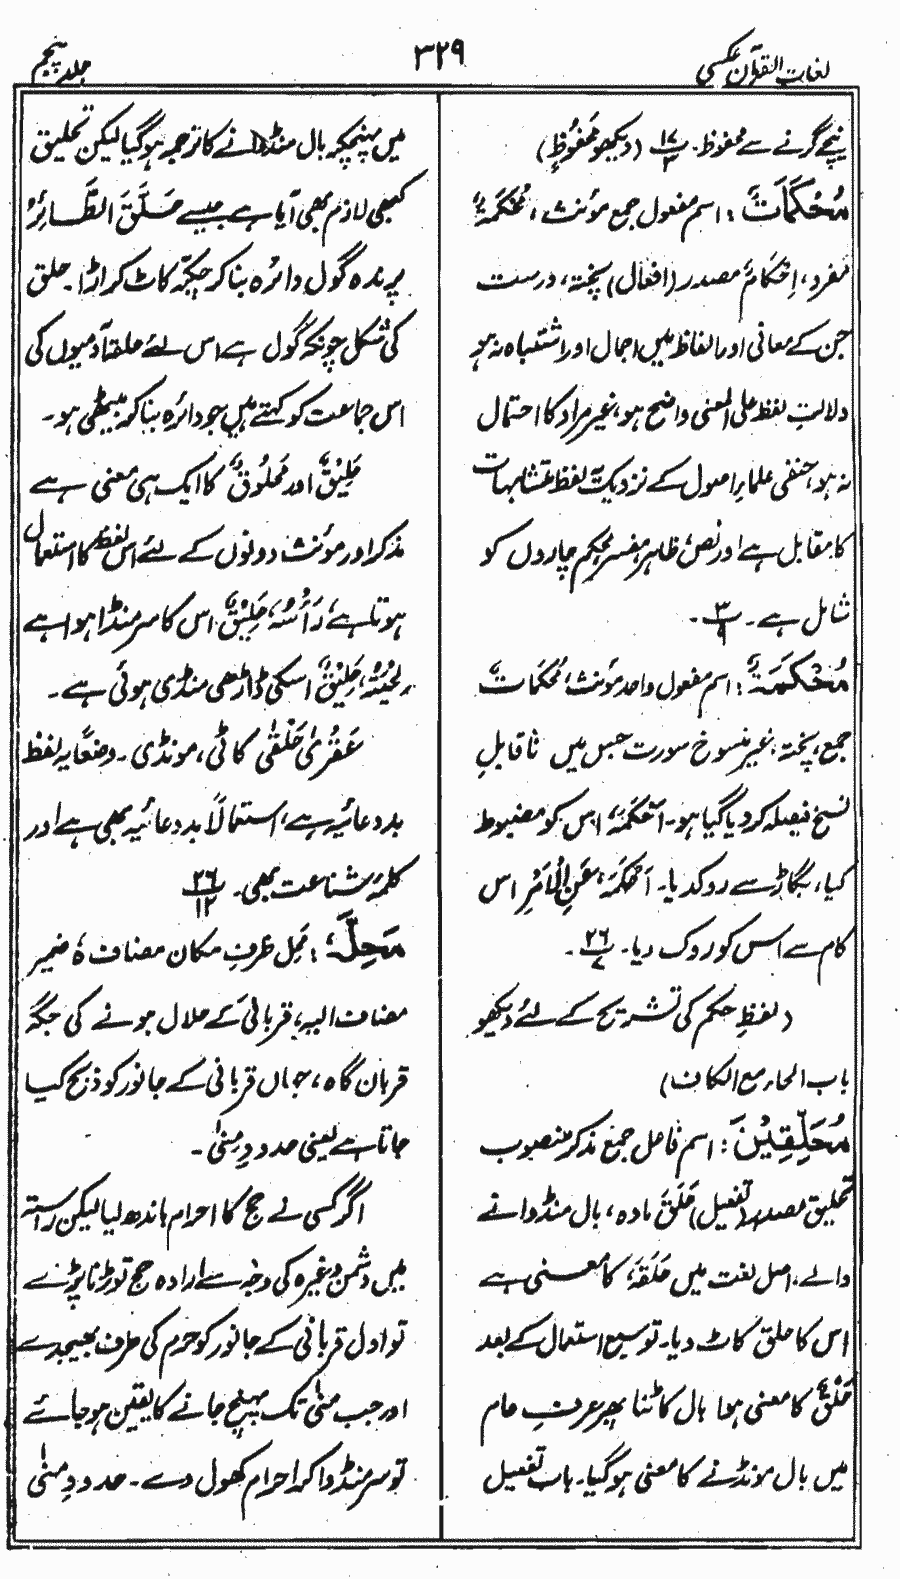 لغات القرآن عکسی
۳۲۹
جلد پنجم
نیچے گرنے سے محفوظ۔ ۱۷/۲ (دیکھو مَحْفُوظٍ)
مُحْکَمَاتٌ: اسم مفعول جمع مؤنث، مُحْکَمَۃٌ
مفرد، اِحْکَامٌ مصدر (افعال) پختہ، درست
جن کے معانی اور الفاظ میں اجمال اور اشتباہ نہ ہو
دلالتِ لفظ علی المعنی واضح ہو، غیر مراد کا احتمال
نہ ہو، حنفی علماءِ اصول کے نزدیک لفظ متشابہات
کا مقابل ہے اور نص، ظاہر، مفسر، محکم چاروں کو
شامل ہے۔ ۳/۹۔
مُحْکَمَۃٌ: اسم مفعول واحد مؤنث، مُحْکَمَاتٌ
جمع، پختہ، غیر منسوخ سورت جس میں ناقابلِ
نسخ فیصلہ کر دیا گیا ہو۔ اَحْکَمَہٗ، اس کو مضبوط
کیا، بگاڑ سے روک دیا۔ اَحْکَمَہٗ عَنِ الْاَمْرِ اس
کام سے اس کو روک دیا۔ ۲۶/۷۔
(لفظِ حکم کی تشریح کے لئے دیکھو
باب الحاء مع الکاف)
مُحَلِّقِیْنَ: اسم فاعل جمع مذکر منصوب
تحلیق مصدر (تفعیل) حَلَقَ مادہ، بال منڈوانے
والے، اصل لغت میں حَلَقَہٗ کا معنی ہے
اس کا حلق کاٹ دیا۔ توسیع استعمال کے بعد
حَلْقٌ کا معنی ہوا بال کاٹنا پھر عرفِ عام
میں بال مونڈنے کا معنی ہو گیا۔ باب تفعیل
میں پہنچکر بال منڈانے کا ترجمہ ہو گیا لیکن تحلیق
کبھی لازم بھی آیا ہے جیسے حَلَّقَ الطَّائِرُ
پرندہ گول دائرہ بنا کر چکّر کاٹ کر اڑا۔ حلق
کی شکل چونکہ گول ہے اس لئے حلقۂ آدمیوں کی
اس جماعت کو کہتے ہیں جو دائرہ بنا کر بیٹھی ہو۔
حَلِیْقٌ اور مَحْلُوْقٌ کا ایک ہی معنی ہے
مذکر اور مؤنث دونوں کے لئے اس لفظ کا استعمال
ہوتا ہے، رَأْسُہٗ حَلِیْقٌ اس کا سر منڈا ہوا ہے
لِحْیَتُہٗ حَلِیْقٌ اسکی ڈاڑھی منڈی ہوئی ہے۔
عَقْرٰی حَلْقٰی کاٹی، مونڈی۔ وضعًا یہ لفظ
بددعائیہ ہے، استعمالًا بددعائیہ بھی ہے اور
کلمۂ شناعت بھی۔ ۲۶/۱۲
مَحِلَّہٗ: مَحِل ظرفِ مکان مضاف ہٗ ضمیر
مضاف الیہ، قربانی کے حلال ہونے کی جگہ
قربان گاہ، جہاں قربانی کے جانور کو ذبح کیا
جاتا ہے یعنی حدودِ مِنٰی۔
اگر کسی نے حج کا احرام باندھ لیا لیکن راستہ
میں دشمن وغیرہ کی وجہ سے ارادہ حج توڑنا پڑے
تو اول قربانی کے جانور کو حرم کی طرف بھیجدے
اور جب منیٰ تک پہنچ جانے کا یقین ہو جائے
تو سر منڈوا کر احرام کھول دے۔ حدودِ مِنٰی